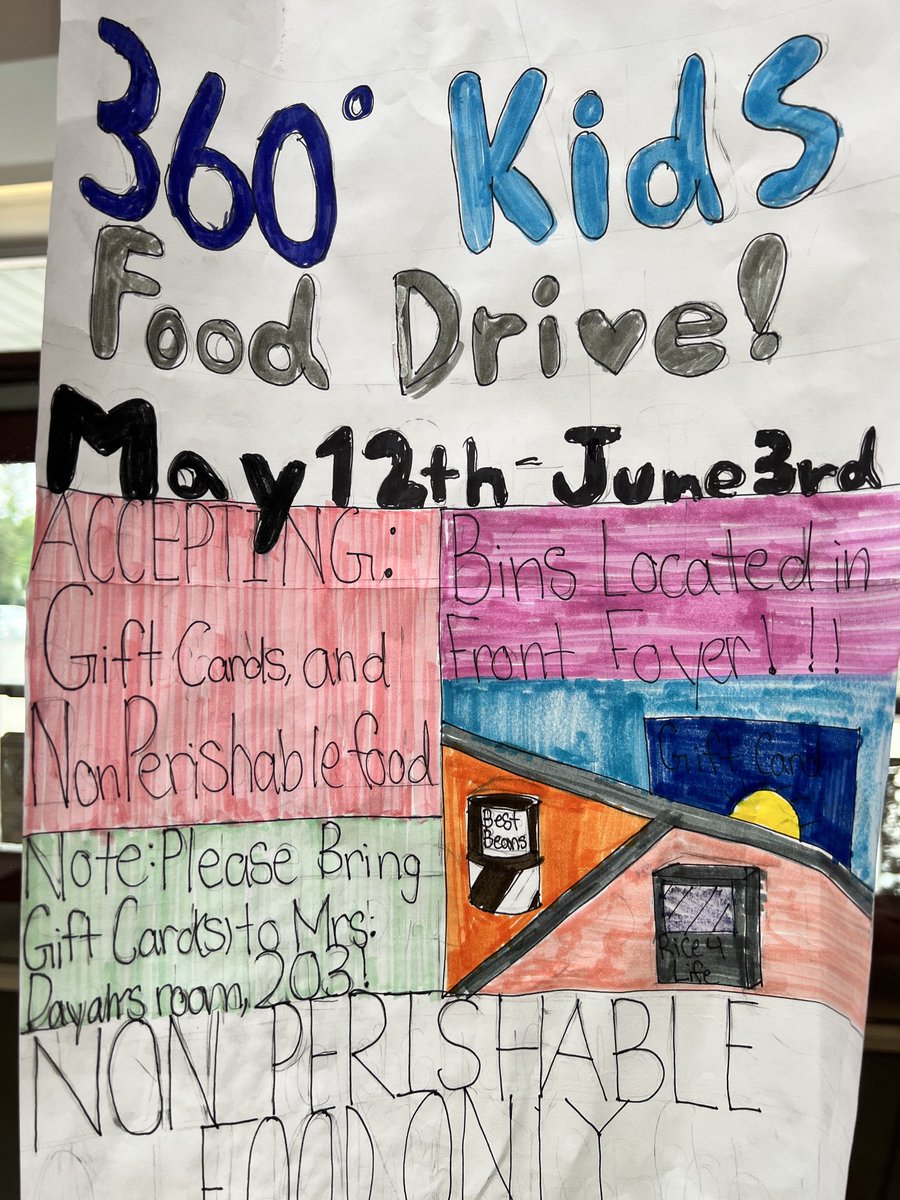 360° Kids
Food Drive!
May 12th - June 3rd
ACCEPTING:
Gift Cards, and
Non Perishable food
Bins Located in
Front Foyer!!!
Gift Card
Best
Beans
Rice 4
Life
Note: Please Bring
Gift Card(s) to Mrs.
room, 203!
NON PERISHABLE
FOOD ONLY